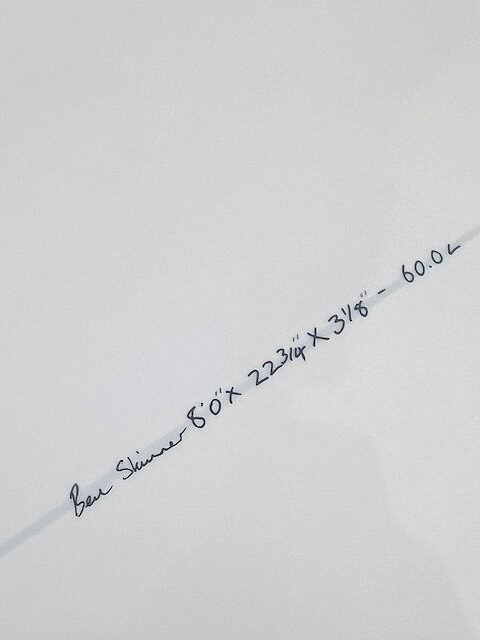 Ben Skinner 8'0" x 22 3/4" x 3 1/8" - 60.0L